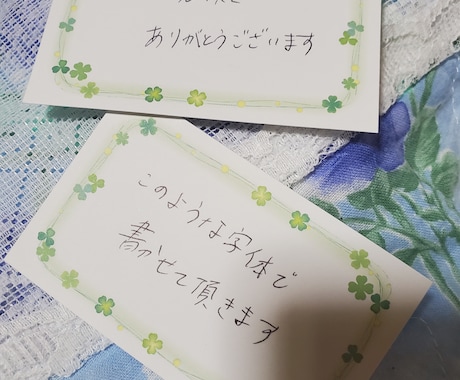 ありがとうございます
このような字体で
書かせて頂きます